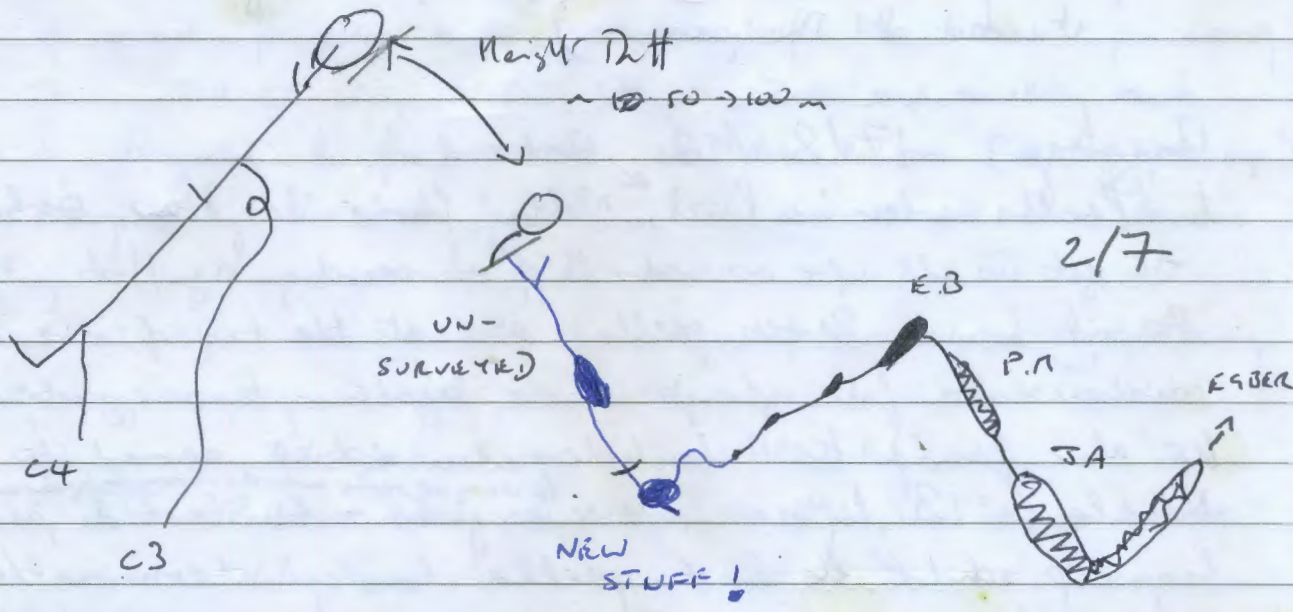 Height Diff
~ 50 → 100 m
2/7
E.B
UN-
SURVEYED
P.R
EGBER
JA
C4
C3
NEW
STUFF!